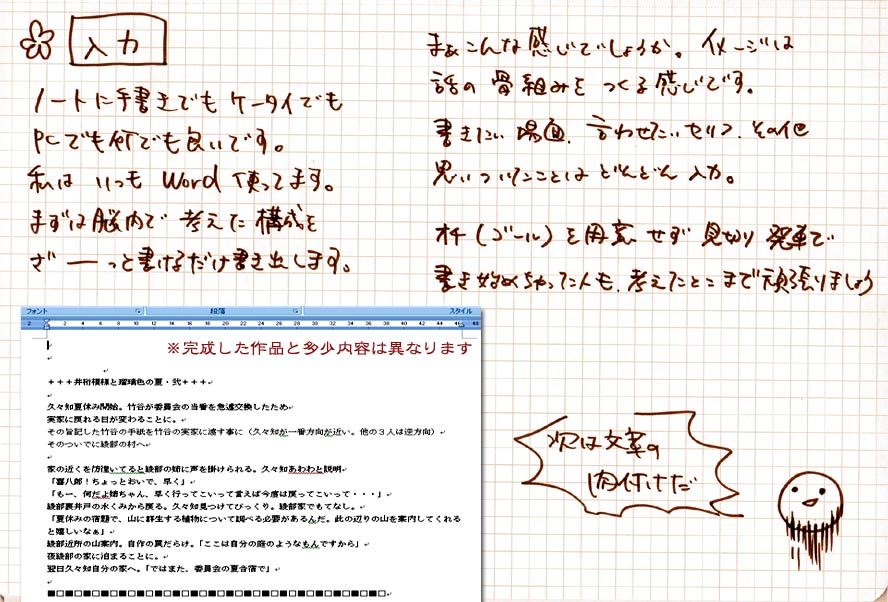 入力
ノートに手書きでもケータイでも
PCでも何でも良いです。
私はいつもWord使ってます。
まずは脳内で考えた構成を
ざーーっと書けるだけ書き出します。
まぁこんな感じでしょうか。イメージは
話の骨組みをつくる感じです。
書きたい場面、言わせたいセリフ、その他
思いついたことはどんどん入力。
オチ(ゴール)を用意せず見切り発車で
書き始めちゃった人も、考えたとこまで頑張りましょう
フォント 段落 スタイル
2 2 4 6 8 10 12 14 16 18 20 22 24 26 28 30 32 34 36 38 40 42 44 46 48
※完成した作品と多少内容は異なります
+++井桁模様と瑠璃色の夏・弐+++
久々知夏休み開始。竹谷が委員会の当番を急遽交換したため
実家に戻れる日が変わることに。
その旨記した竹谷の手紙を竹谷の実家に渡す事に(久々知が一番方向が近い。他の3人は逆方向)
そのついでに綾部の村へ
家の近くを彷徨いてると綾部の姉に声を掛けられる。久々知あわわと説明
「喜八郎!ちょっとおいで、早く」
「もー、何だよ姉ちゃん、早く行ってこいって言えば今度は戻ってこいって・・・」
綾部裏井戸の水くみから戻る。久々知見つけてびっくり。綾部家でもてなし。
「夏休みの宿題で、山に群生する植物について調べる必要があるんだ。此の辺りの山を案内してくれる
と嬉しいなぁ」
綾部近所の山案内。自作の罠だらけ。「ここは自分の庭のようなもんですから」
夜綾部の家に泊まることに。
翌日久々知自分の家へ。「ではまた、委員会の夏合宿で」
■□■□■□■□■□■□■□■□■□■□■□■□■□■□■□■□■□■□■□■□■□
次は文章の
肉付けだ